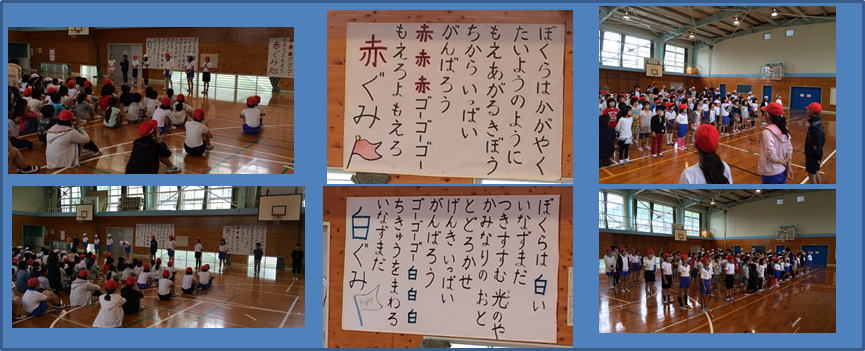 ぼくらはかがやく
たいようのように
もえあがるきぼう
ちから いっぱい
がんばろう
赤 赤 赤 ゴーゴーゴー
もえろよもえろ
赤ぐみ
ぼくらは 白い
いなずまだ
つきすすむ 光のや
かみなりの おと
とどろかせ
げんき いっぱい
がんばろう
ゴーゴーゴー 白 白 白
ちきゅうをまわる
いなずまだ
白ぐみ